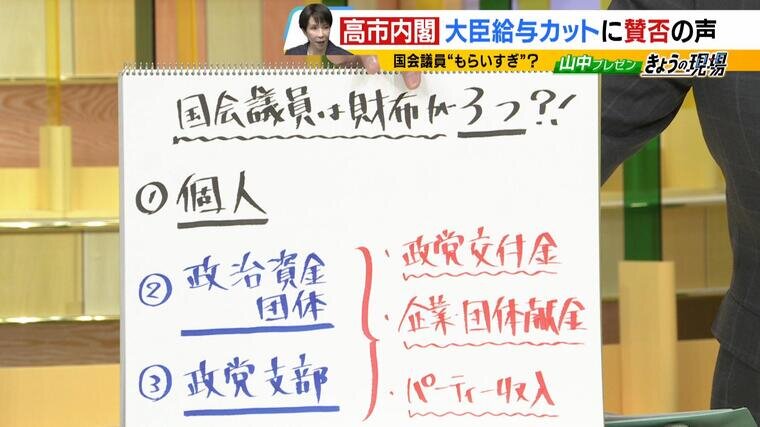 高市内閣 大臣給与カットに賛否の声
国会議員“もらいすぎ”? 山中プレゼン きょうの現場
国会議員は財布が3つ?!
① 個人
② 政治資金
団体
③ 政党支部
・政党交付金
・企業・団体献金
・パーティー収入